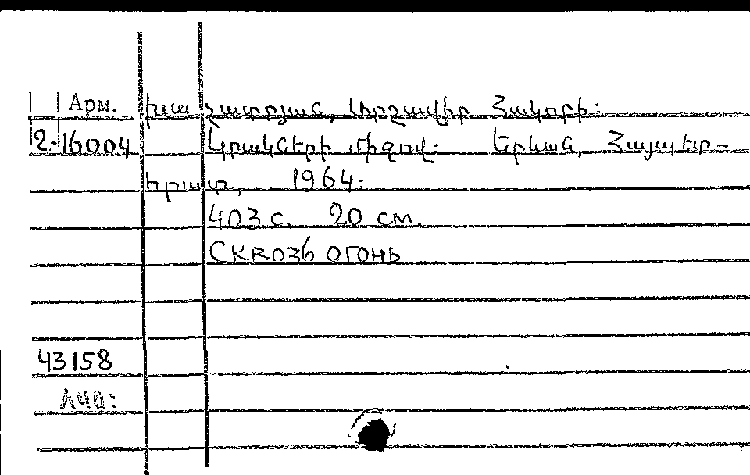 Арм. Խաչատրյան, Արշավիր Հակոբի:
2-16004 Կրակների միջով. Երևան, Հայպետ-
հրատ, 1964:
403 с. 20 см.
Сквозь огонь
43158